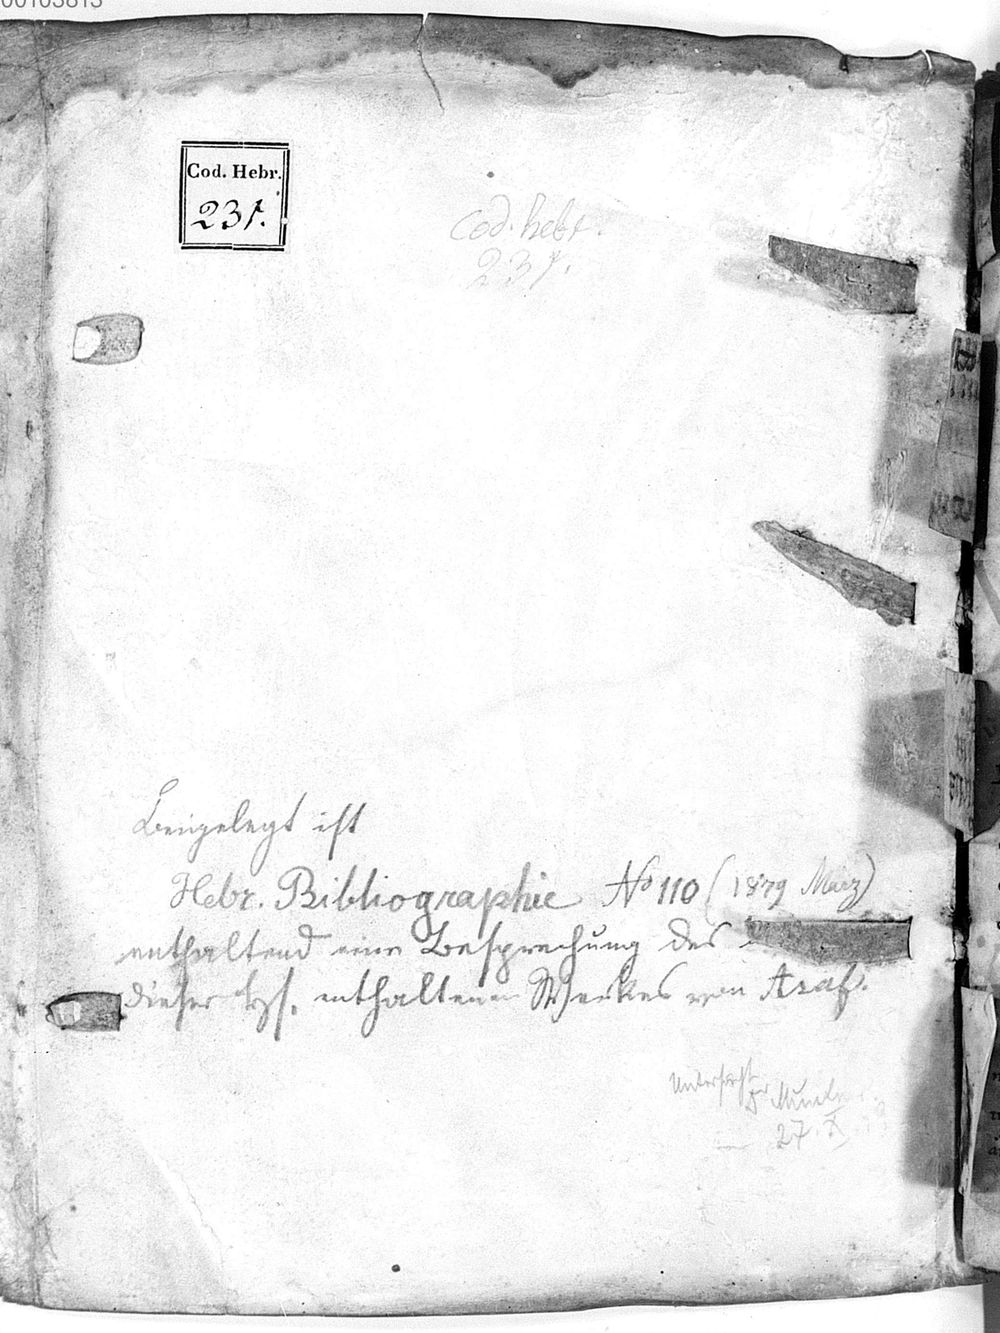 00103813
Cod. Hebr.
231.
cod. hebr.
231.
Beigelegt ist
Hebr. Bibliographie No 110 (1879 März)
enthaltend eine Besprechung des in
dieser Hs. enthaltenen Werkes von Asaf.
Untersucht
27. X